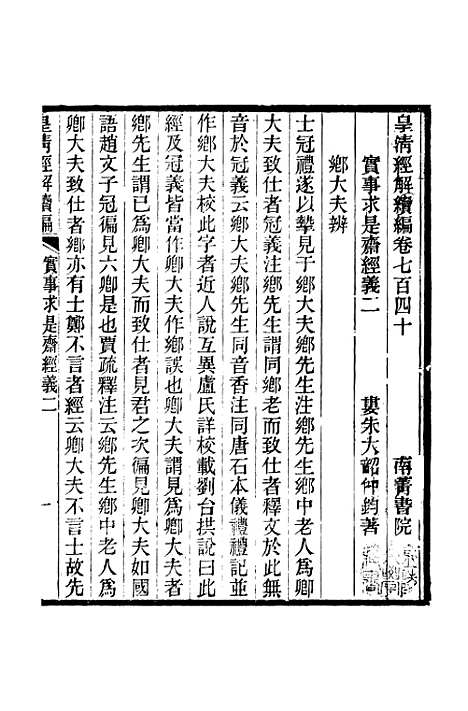 皇淸經解續編卷七百四十
南菁書院
實事求是齋經義二
婁朱大韶仲鈞著
鄉大夫辨
士冠禮遂以摯見于鄉大夫鄉先生注鄉先生鄉中老人爲卿
大夫致仕者冠義注鄉先生謂同鄉老而致仕者釋文於此無
音於冠義云鄉大夫鄉先生同音香注同唐石本儀禮禮記並
作鄉大夫校此字者近人說互異盧氏詳校載劉台拱說曰此
經及冠義皆當作卿大夫作鄉誤也卿大夫謂見爲卿大夫者
鄉先生謂已爲卿大夫而致仕者見君之次徧見卿大夫如國
語趙文子冠徧見六卿是也賈疏釋注云鄉先生鄉中老人爲
卿大夫致仕者鄉亦有士鄭不言者經云卿大夫不言士故先
皇淸經解續編
實事求是齋經義二
一